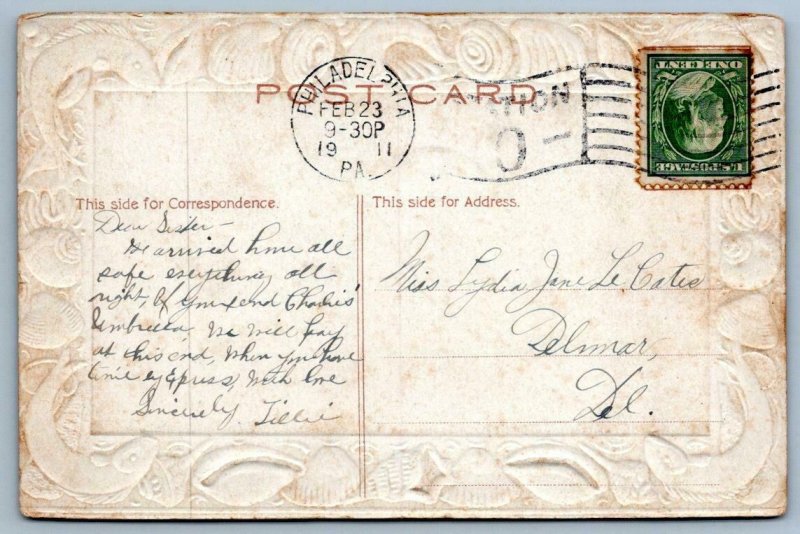 POST CARD
PHILADELPHIA
FEB 23
9-30P
19 11
PA.
STATION
O
ONE CENT
U.S. POSTAGE
This side for Correspondence.
Dear Sister -
We arrived home all
safe everything all
right, If you send Charlie's
Umbrella We will pay
at this end, When you have
time express, with love
Sincerely Tillie
This side for Address.
Miss Lydia Jane Le Cates
Delmar,
Del.